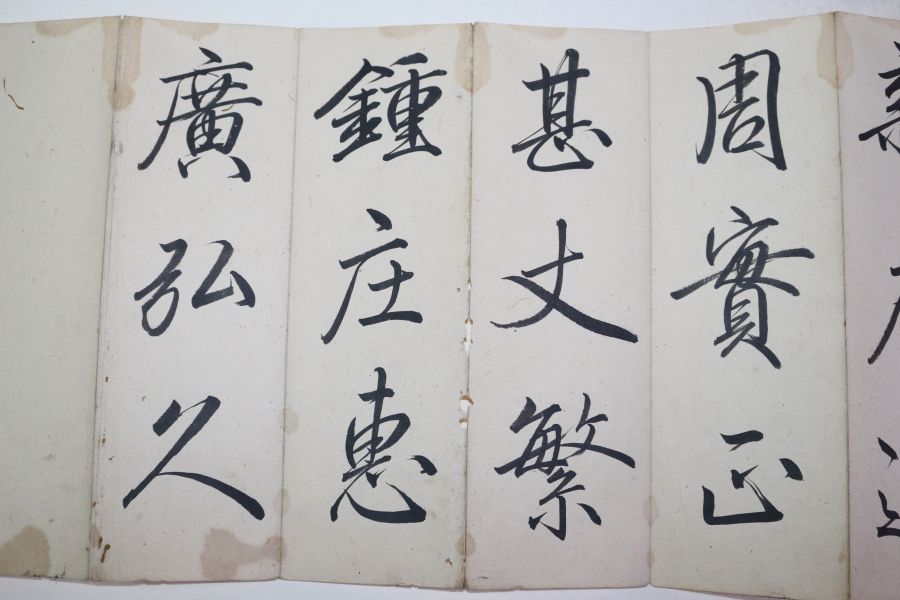 周實正
甚丈繁
鍾庄惠
廣弘久